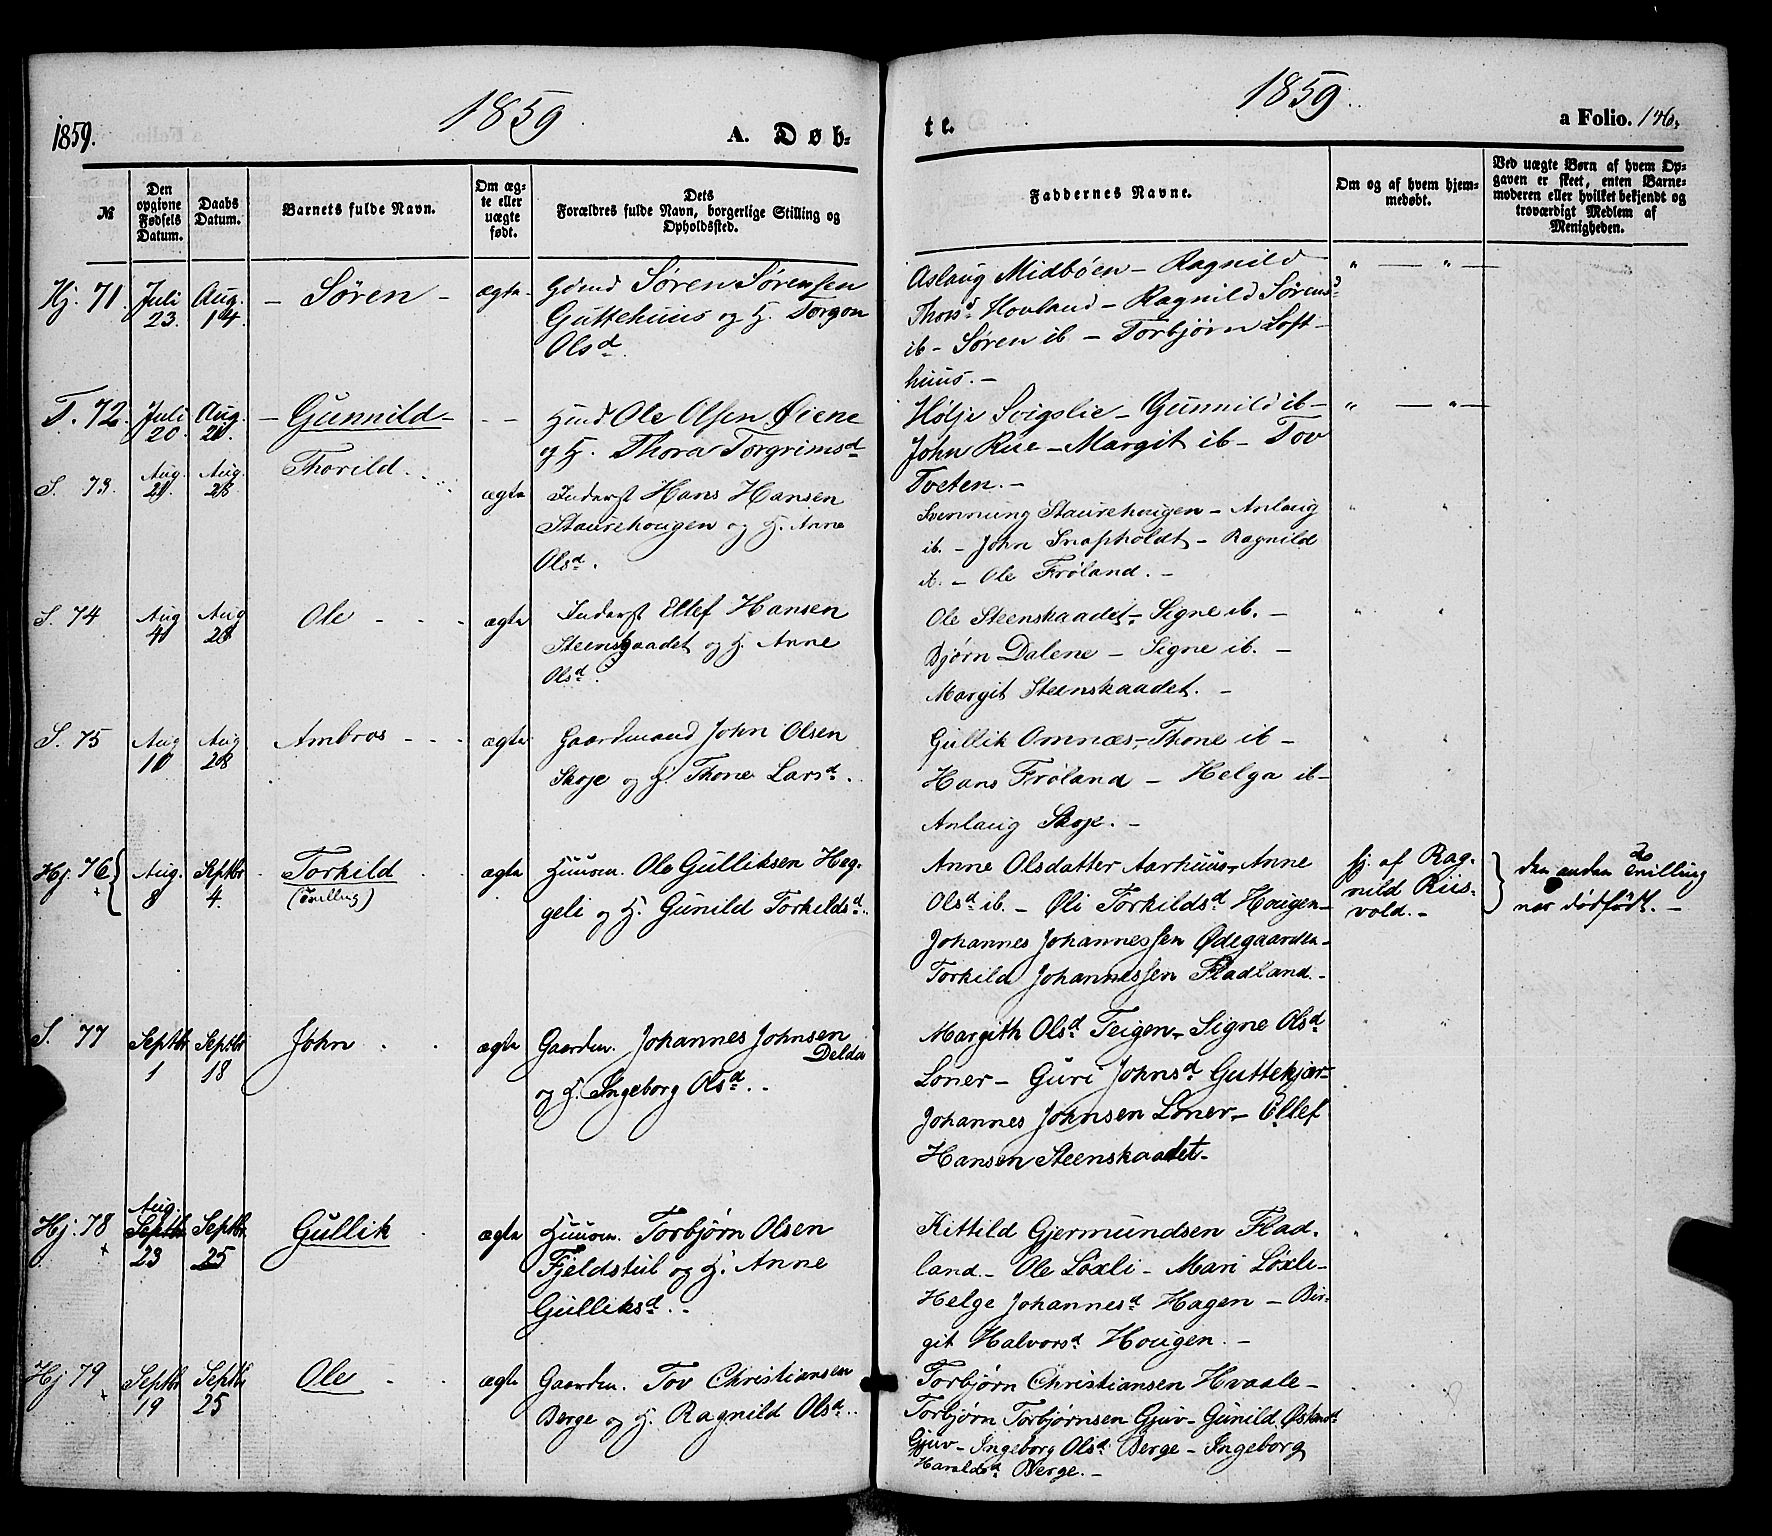 1859.
1859
A. Døb-
№
Den opgivne Fødsels Datum.
Daabs Datum.
Barnets fulde Navn.
Om ægte eller uægte født.
Dets
Forældres fulde Navn, borgerlige Stilling og
Opholdssted.
Hj. 71. Juli 23. Aug. 14. – Søren – ægte Søren Sørensen
Guttehuus og H. Torgon
Olsd.
T. 72. Juli 20. Aug. 21. – Gunnild – – – Ole Olsen Øiene
og H. Thora Torgrimsd
S. 73. Aug. 21. Aug. 28. Thorild. ægte Inderst Hans Hansen
Staurehougen og H. Anne
Olsd.
S. 74 Aug 4 Aug 28 Ole - - - ægte Inderst Ellef Hansen
Steenskaadet og H. Anne
Olsd.
S. 75 Aug 10 Aug 28 Ambros - - - ægte Gaardmand John Olsen
Skoje og H. Thone Larsd.
Hj. 76 Aug. 8 Septbr 4. Torkild (Tvilling) ægte Huusm. Ole Gulliksen Heg-
geli og H. Gunild Torkildsd.
S. 77 Septbr 1 Septbr 18 John ægte Gaardm. Johannes Johnsen
Deldà
og H. Ingeborg Olsd.
Hj. 78 Aug. Septbr 23 Septbr 25 Gullik ægte Huusm. Torbjørn Olsen
Fjeldstul og H. Anne
Gulliksd.
Hj. 79 Septbr 19 Septbr 25 Ole ægte Gaardm. Tov Christiansen
Berge og H. Ragnild Olsd.
1859.
te.
a Folio. 146.
Faddernes Navne.
Om og af hvem hjem-
medøbt.
Ved uægte Børn af hvem Op-
gaven er skeet, enten Barne-
moderen eller hvilket bekjendt og
troværdigt Medlem af
Menigheden.
Aslaug Midbøen – Ragnild
Thorsd Hovland – Ragnild Sørensd
ib – Søren ib – Torbjørn Loft-
huus. –
Hølje Svigslie – Gunnild ib –
John Rue – Margit ib – Tov
Tveten. –
Svennung Staurehougen – Anlaug
ib. – John Snapholdt – Ragnild
ib. – Ole Frøland. –
Ole Steenskaadet – Signe ib. –
Bjørn Dalene – Signe ib. –
Margit Steenskaadet. –
Gullik Omnæs – Thone ib –
Hans Frøland – Helga ib –
Anlaug Skoje. –
Anne Olsdatter Aarhuus – Anne
Olsd ib. – Øli Torkildsd Hougen –
Johannes Johannessen Ødegaarden –
Torkild Johannessen Fladland. –
hj. af Rag-
nild Riis-
vold. –
den anden Tvilling
var dødfødt. –
Margith Olsd Teigen – Signe Olsd
Loner – Guri Johnsd Guttekjær –
Johannes Johnsen Loner – Ellef
Hansen Steenskaadet –
Kittild Gjermundsen Flad-
land – Ole Löxli – Mari Löxli –
Helge Johannesd Hagen – Bir-
git Halvorsd Hougen. –
Torbjørn Christiansen Hvaale –
Torbjørn Torbjørnsen Gjuv – Gunild
Gjuv – Ingeborg Olsd Berge – Ingeborg
Haraldsd Berge. –